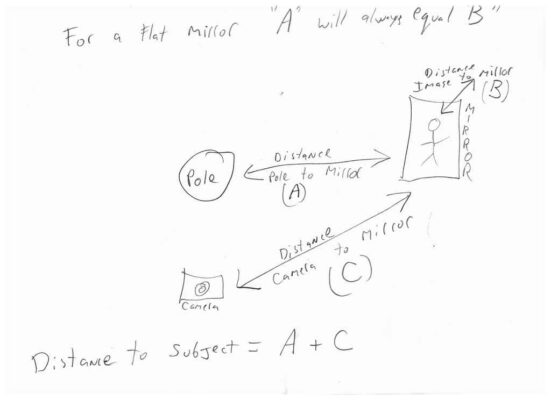 For a flat mirror "A" will always equal B"
Distance
Image to Mirror
(B)
MIRROR
Distance
Pole
Pole to Mirror
(A)
Distance
Camera to Mirror
(C)
Camera
Distance to subject = A + C